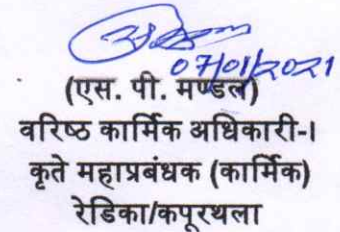 07/01/2021
(एस. पी. मण्डल)
वरिष्ठ कार्मिक अधिकारी-।
कृते महाप्रबंधक (कार्मिक)
रेडिका/कपूरथला